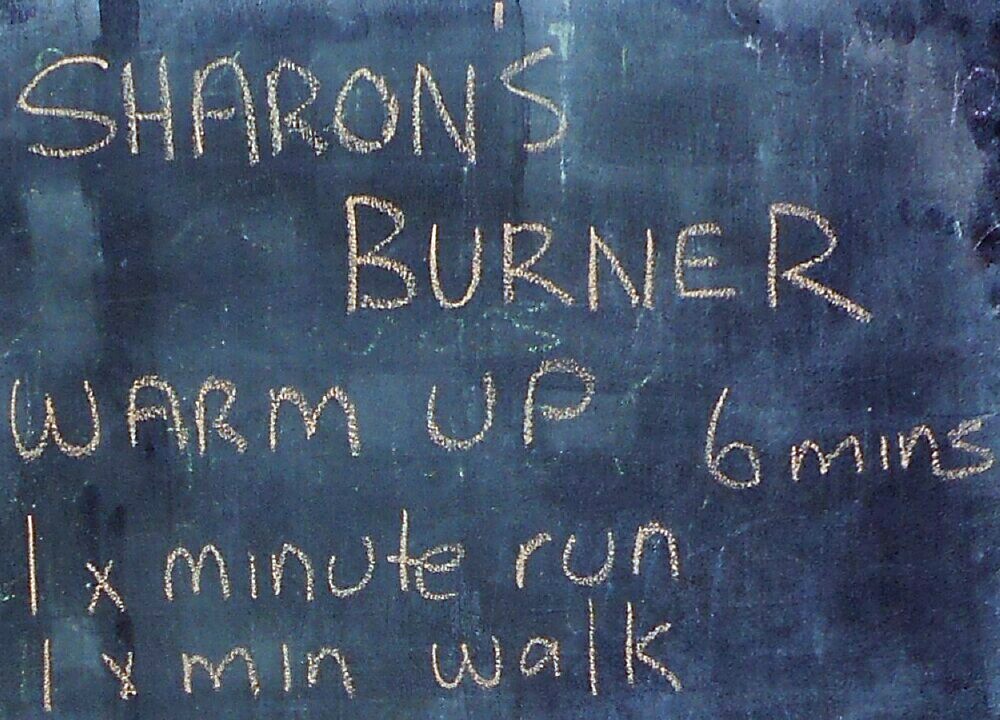 SHARON'S
BURNER
WARM UP 6 mins
1 x minute run
1 x min walk